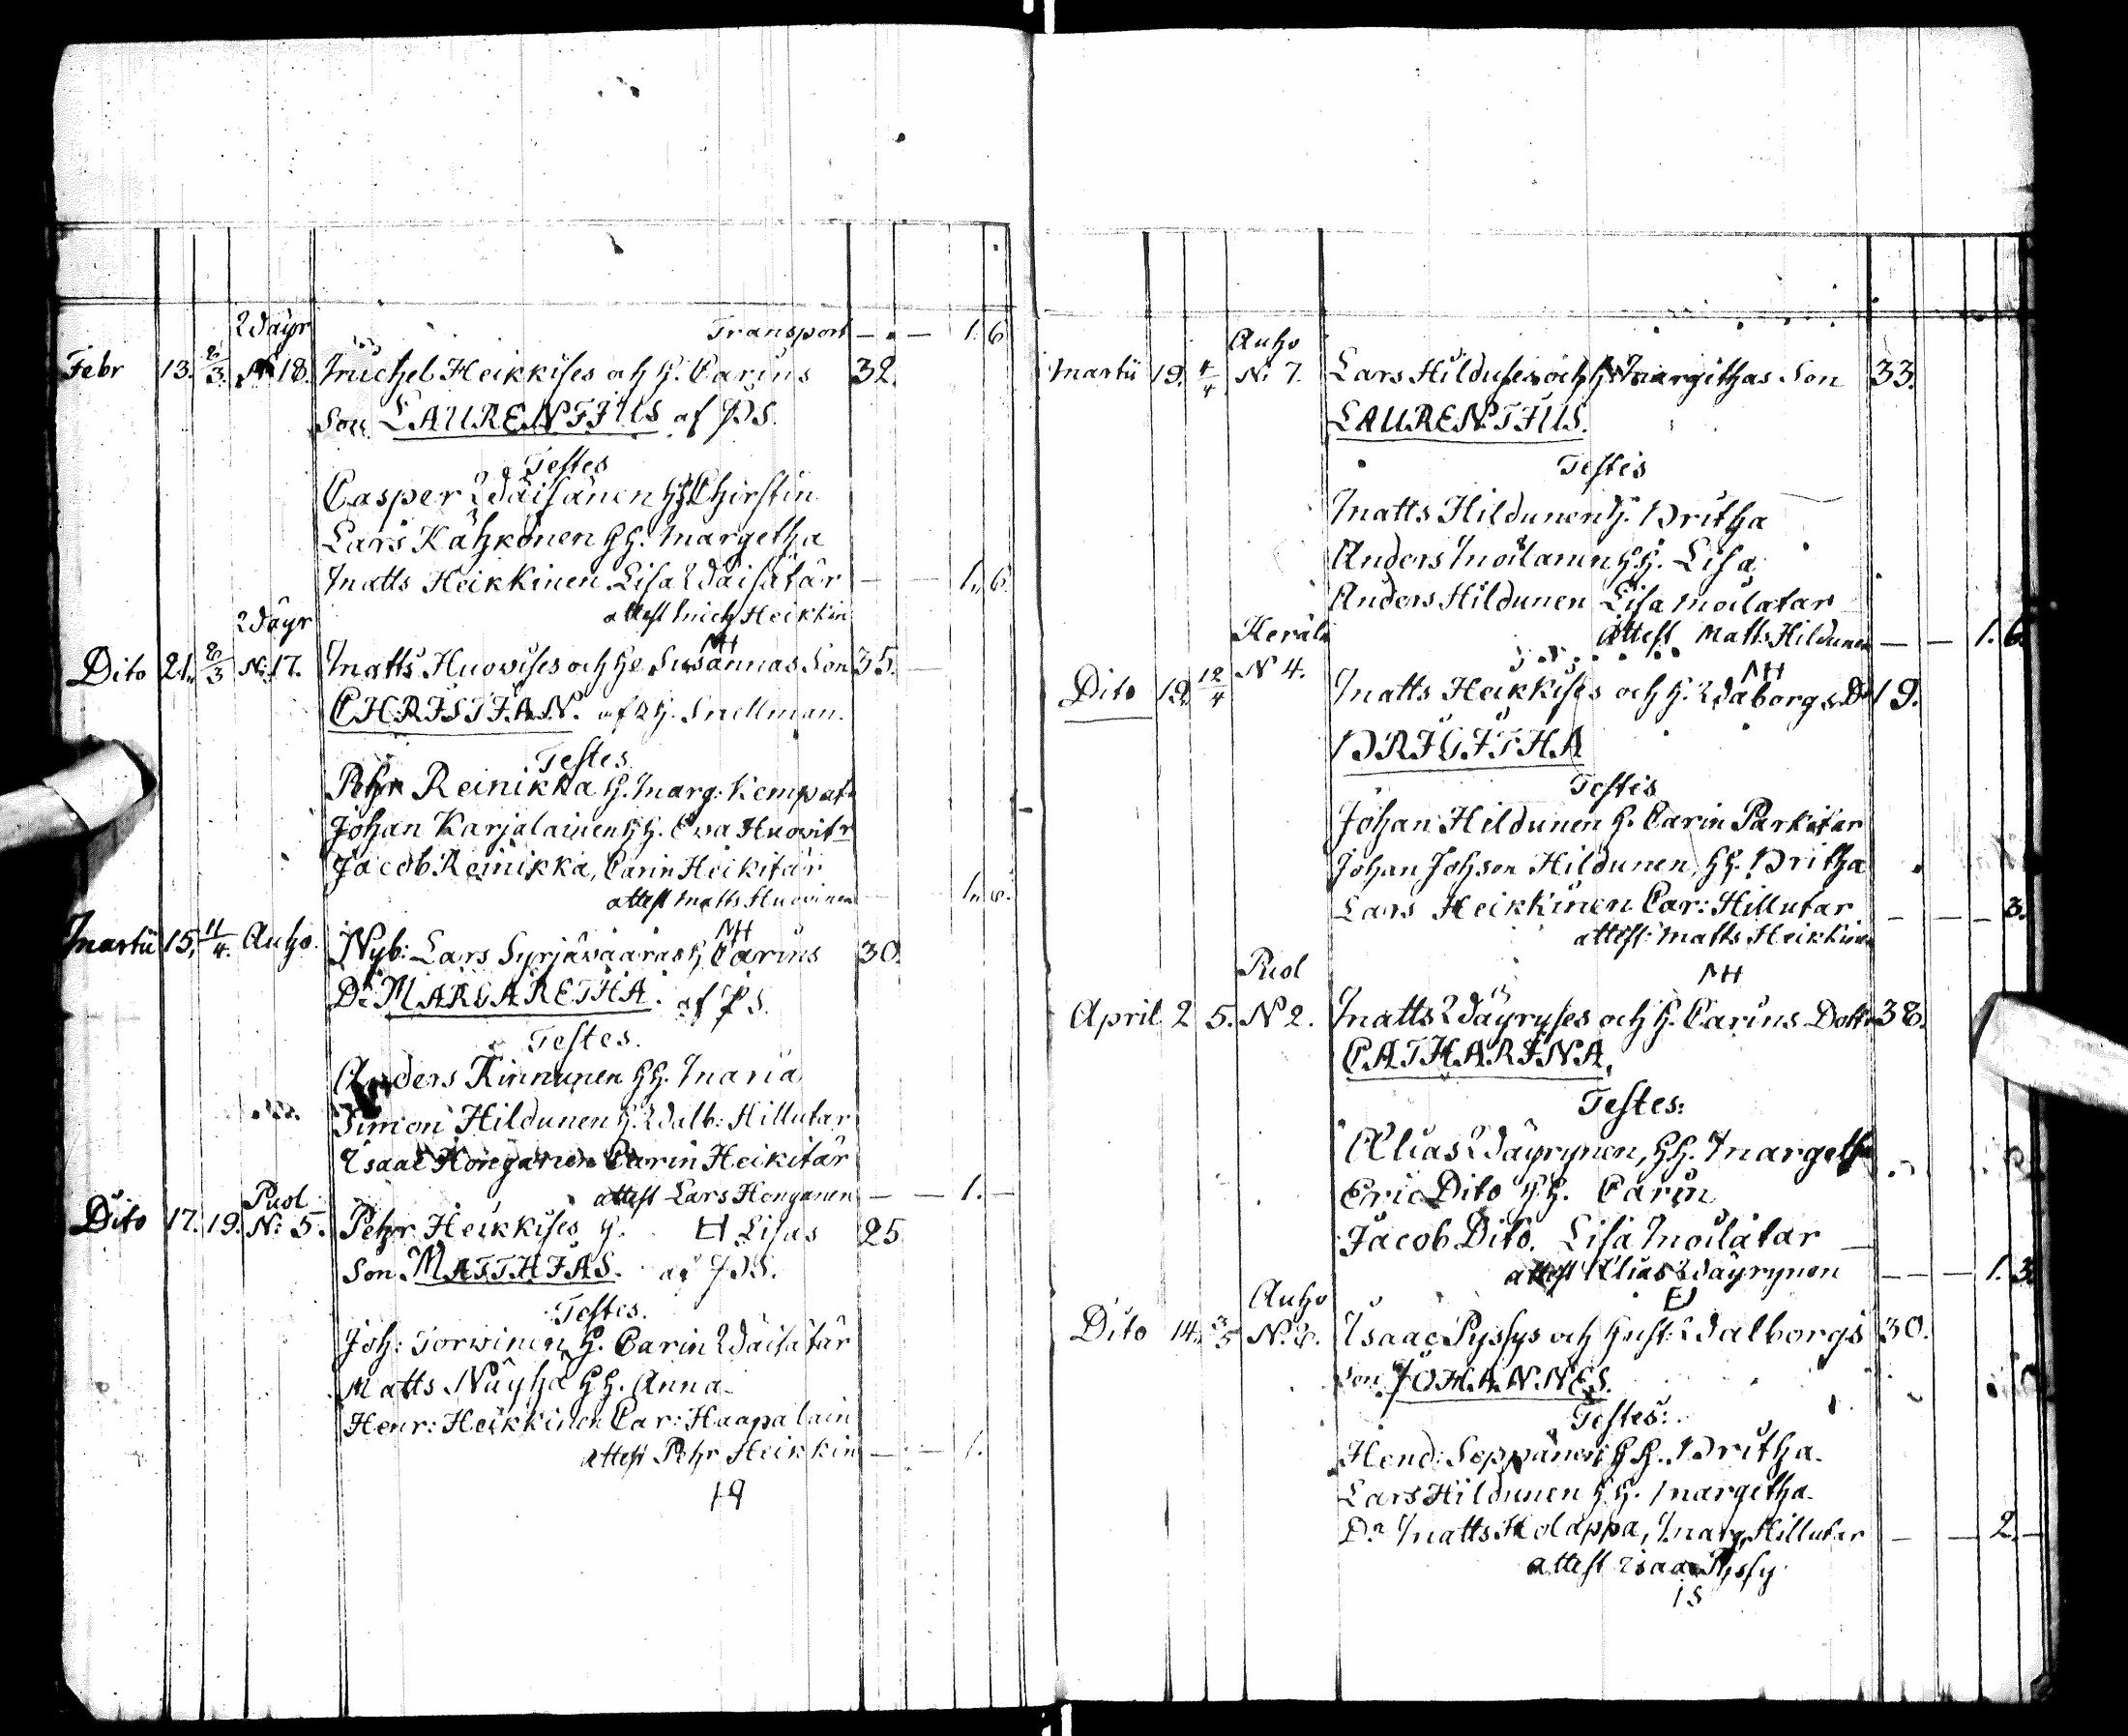 Transport — . — 1. 6
Wäyr
Febr 13. 2/3. N 18. Michel Heikkises och H. Carins 32.
Son LAURENTIUS af P.S.
Testes
Casper Wäisänen HH Chirstin
Lars Kähkönen HH. Margetha
Matts Heikkinen Lisa Wäisätär — — 1. 6
attest Mich Heikkin
Wäyr
Dito 21. 2/3 N. 17. Matts Huovises och H Susannas Son 35. —
CHRISTIAN. af H. Snellman.
Testes
Pehr Reinikka H. Marg: Kempat
Johan Karjalainen HH. Eva Huovitr
Jacob Reinikka, Carin Heikitär
attest Matts Huovinen — — 1. 6.
NH
Martii 15. 11/4. Auho. Nyb: Lars Syrjävaaras H Carins 30.
Dr MARGARETHA. af P.S.
Testes.
Anders Kinnunen HH. Maria
Simon Hildunen H. Walb: Hillutar
Isaac Honganen Carin Heikitär
attest Lars Honganen — — 1. —
Puol
Dito 17. 19. N. 5. Pehr Heikkises H. Lisas 25
Son MATTHIAS. af P.S.
Testes.
Joh: Torvinen H. Carin Wäisätär
Matts Näyhä HH. Anna
Henr: Heikkinen Car: Haapalain
attest Pehr Heikkin — — 1.
19
Auho
Martii 19. 4/4 N. 7. Lars Hilduses och H Margithas Son 33.
LAURENTIUS.
Testis
Matts Hildunen H. Britha
Anders Moilanen HH. Lisa
Anders Hildunen Lisa Moilatar
attest Matts Hildunen — — 1. 6.
Heräl
NH
Dito 12 12/4 N 4. Matts Heikkises och H. Waborgs Dr 19.
BRIGITHA
Testis
Johan Hildunen H. Carin Parkitar
Johan Johson Hildunen, HH. Britha
Lars Heikkinen Car: Hillutar — — — 3.
attest: Matts Heikkinen
Puol
NH
April 2 5. N 2. Matts Wäyryses och H. Carins Dottr 38.
CATHARINA.
Testes:
Elias Wäyrynen, HH. Margetha
Eric Dito HH. Carin
Jacob Dito. Lisa Moilatar
attest Elias Wäyrynen — — 1. 3.
Auho
Dito 14. 3/5 N. 6. Isaac Pyssys och Hust: Walborgs 30.
Son JOHANNES.
Testes:
Hend: Seppänen HH. Britha
Lars Hildunen HH. Margetha
Dr Matts Holappa, Marg Hillutar — — 2. —
attest Isaac Pyssy
15